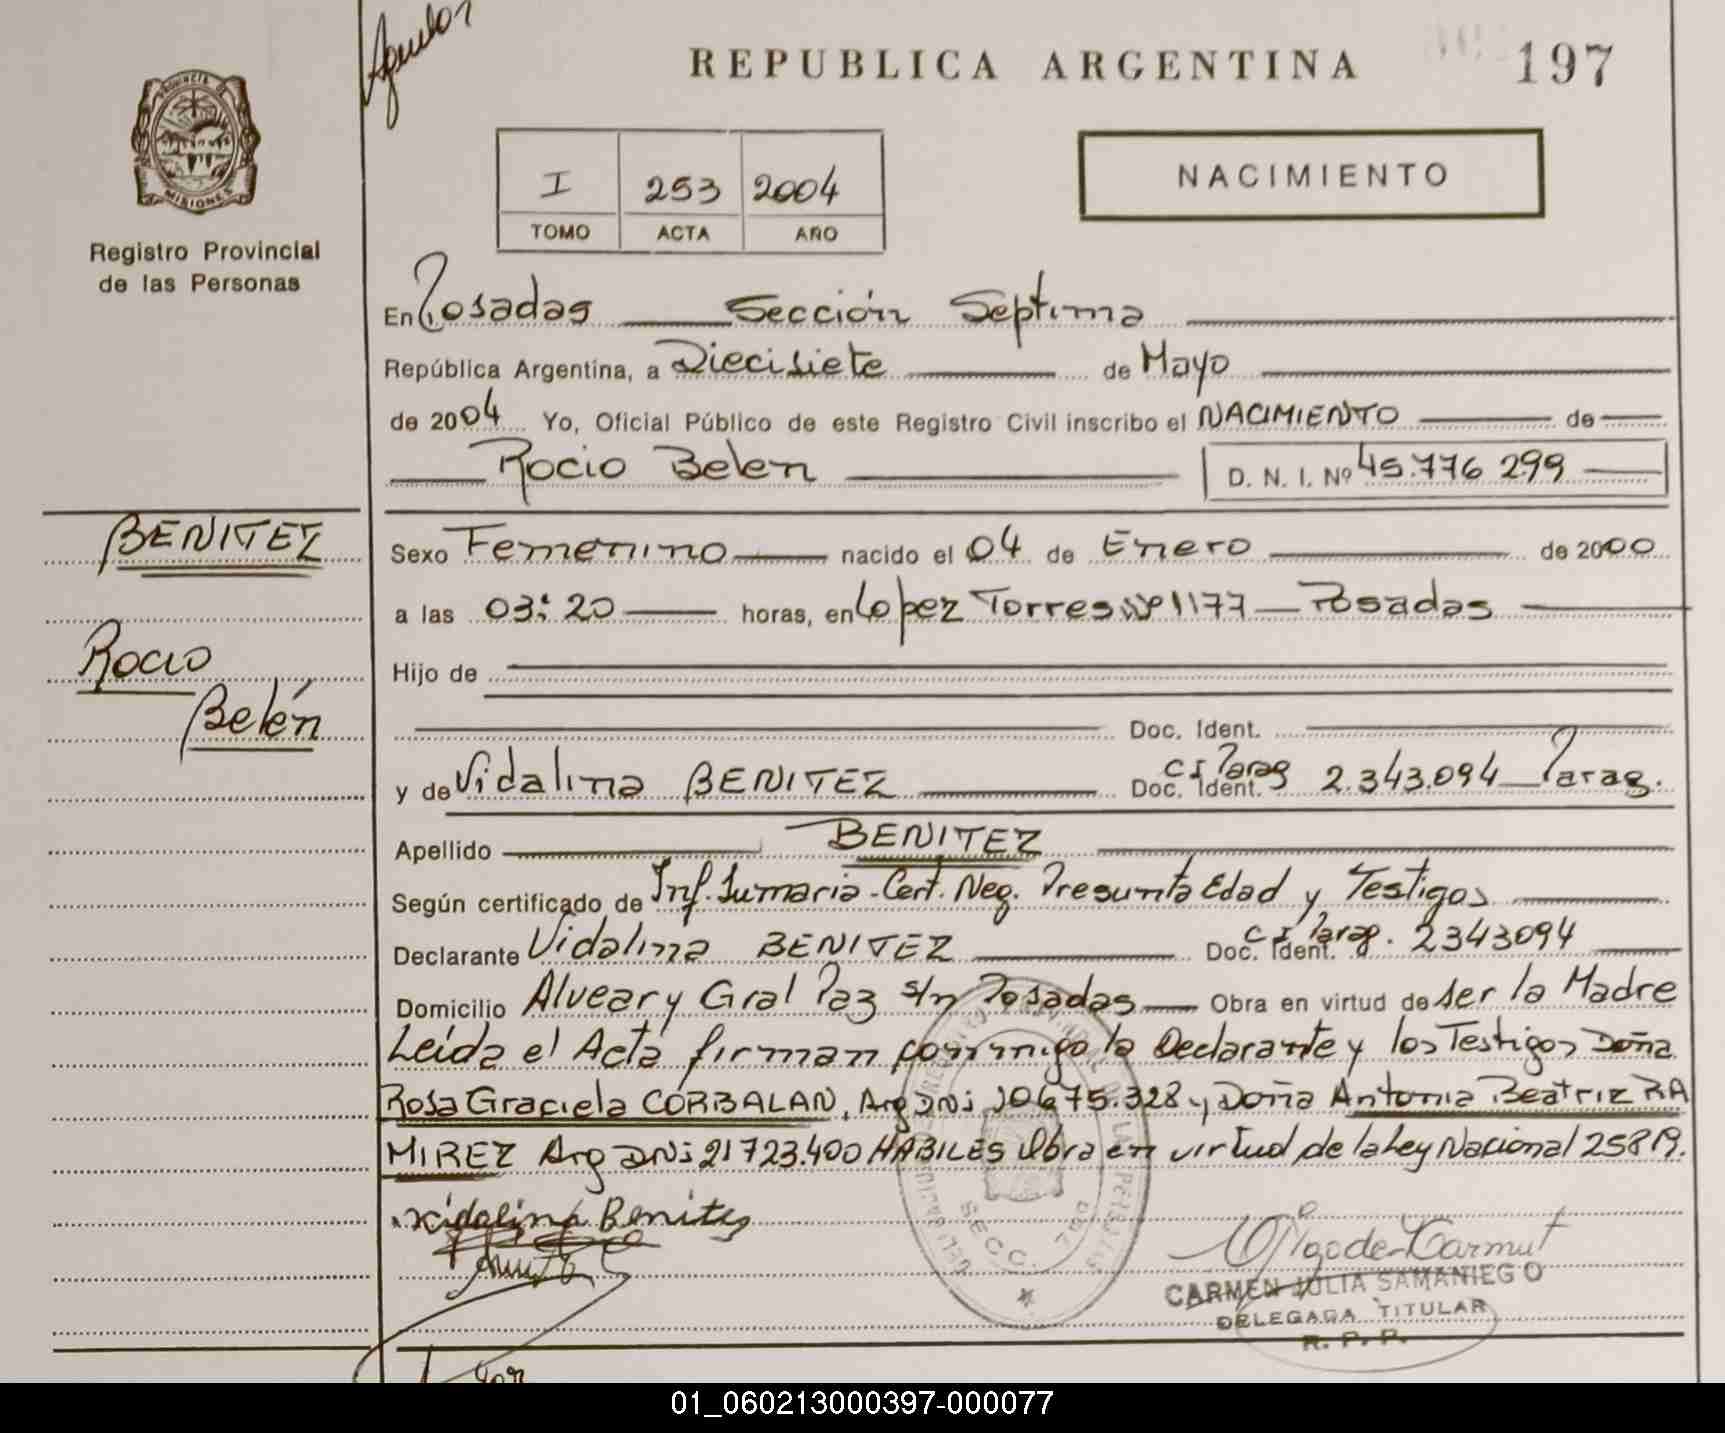 Aguilar
REPUBLICA ARGENTINA 197
PROVINCIA DE MISIONES
Registro Provincial
de las Personas
I 253 2004
TOMO ACTA AÑO
NACIMIENTO
En Posadas Sección Septima
República Argentina, a Diecisiete de Mayo
de 2004 Yo, Oficial Público de este Registro Civil inscribo el NACIMIENTO de
Rocio Belen D. N. I. Nº 45.776 299
BENITEZ
Rocio
Belén
Sexo Femenino nacido el 04 de Enero de 2000
a las 03:20 horas, en Lopez Torres Nº 1177 Posadas
Hijo de
Doc. Ident.
y de Vidalina BENITEZ Doc. Ident. C I Parag 2.343.094 Parag.
Apellido BENITEZ
Según certificado de Inf. Sumaria - Cert. Neg. Presunta Edad y Testigos
Declarante Vidalina BENITEZ Doc. Ident. C I Parag. 2343094
Domicilio Alvear y Gral Paz s/n Posadas Obra en virtud de ser la Madre
Leída el Acta firman conmigo la Declarante y los Testigos Doña
Rosa Graciela CORBALAN, Arg DNI: 10675.328 y Doña Antonia Beatriz RA
MIREZ Arg DNI: 21723.400 HABILES Obra en virtud de la Ley Nacional 25819.
Vidalina Benites
SECC. 7
CARMEN JULIA SAMANIEGO
DELEGADA TITULAR
R. P. P.
01_060213000397-000077